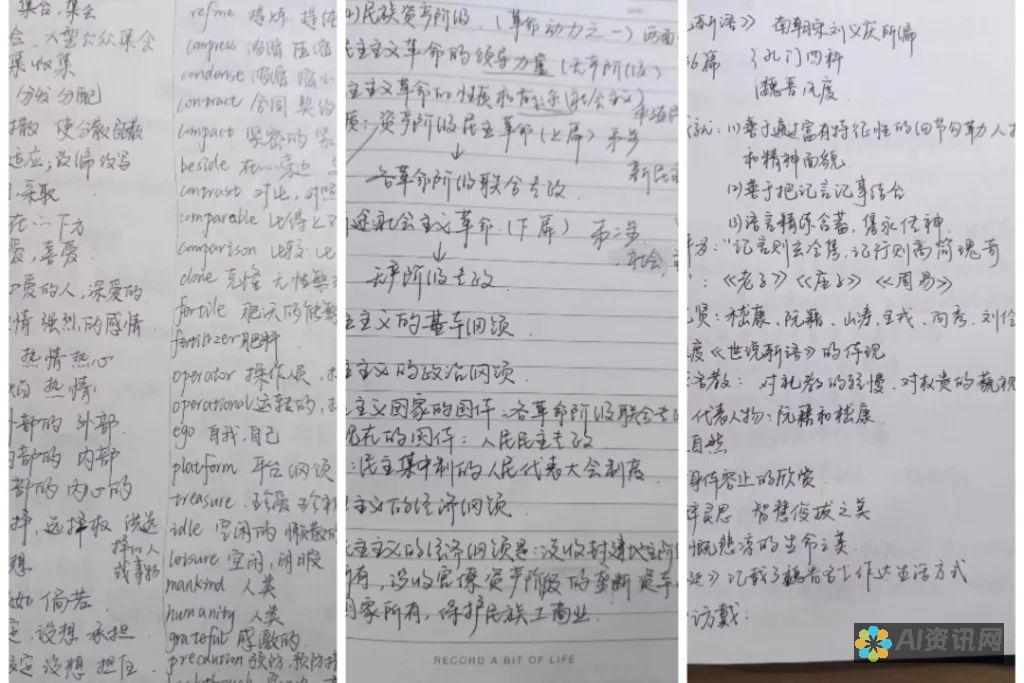 集合，集会
会，大型公众集会
集 收集
分发 分配
散 使分散
适应；改编 改写
采取
在…下方
爱，喜爱
爱的人，深爱的
情 强烈的感情
热情 热心
热情
部的 外部
部的 内部
部的 内心的
择，选择权
想
偏若
定，设想 承担
设想 担任
refine 提炼
compress 浓缩 压缩
condense 浓缩 缩小
contract 合同 契约
compact 紧密的
beside 在…旁边
contrast 对比，对照
comparable
comparison 比较
clone 克隆 无性繁
fertile 肥沃的
fertilizer 肥料
operator 操作员
operational 运转的，
ego 自我，自己
platform 平台 纲领
treasure
idle 空闲的
leisure 空闲，闲暇
mankind 人类
humanity 人类
grateful 感激的
precaution 预防，预防
民族资产阶级．（革命动力之一）
主主义革命的领导力量（无产阶级）
主主义革命的性质和前途（社会主义）
资产阶级民主革命（上篇）
↓ 新民
各革命阶级联合专政
途 社会主义革命．（下篇）
↓ 社会
无产阶级专政
主义的基本纲领
主义的政治纲领
主义国家的国体：各革命阶级联合专
现在的国体：人民民主专政
：民主集中制的人民代表大会制度
主义的经济纲领
主主义的经济纲领是：没收封建地主阶
所有，没收官僚资产阶级的垄断资本
国家所有，保护民族工商业．
RECORD A BIT OF LIFE
新语》 南朝宋刘义庆所编
6篇 孔门四种
魏晋风度
(1)善于通过富有特征性的细节勾勒人
和精神面貌
(2)善于把记言记事结合
(3)语言精练含蓄，隽永传神
"记言则玄冷隽，记行则高简瑰奇
：《老子》《庄子》《周易》
贤：嵇康、阮籍、山涛、王戎、向秀、刘伶
度《世说新语》的体现
名教：对礼教的轻慢．对权贵的藐视
代表人物：阮籍和嵇康
自然
身体容止的欣赏
灵思 智慧俊拔之美
慨悲凉的生命之美
》记载了魏晋名士作达生活方式
访戴：
AI资讯网